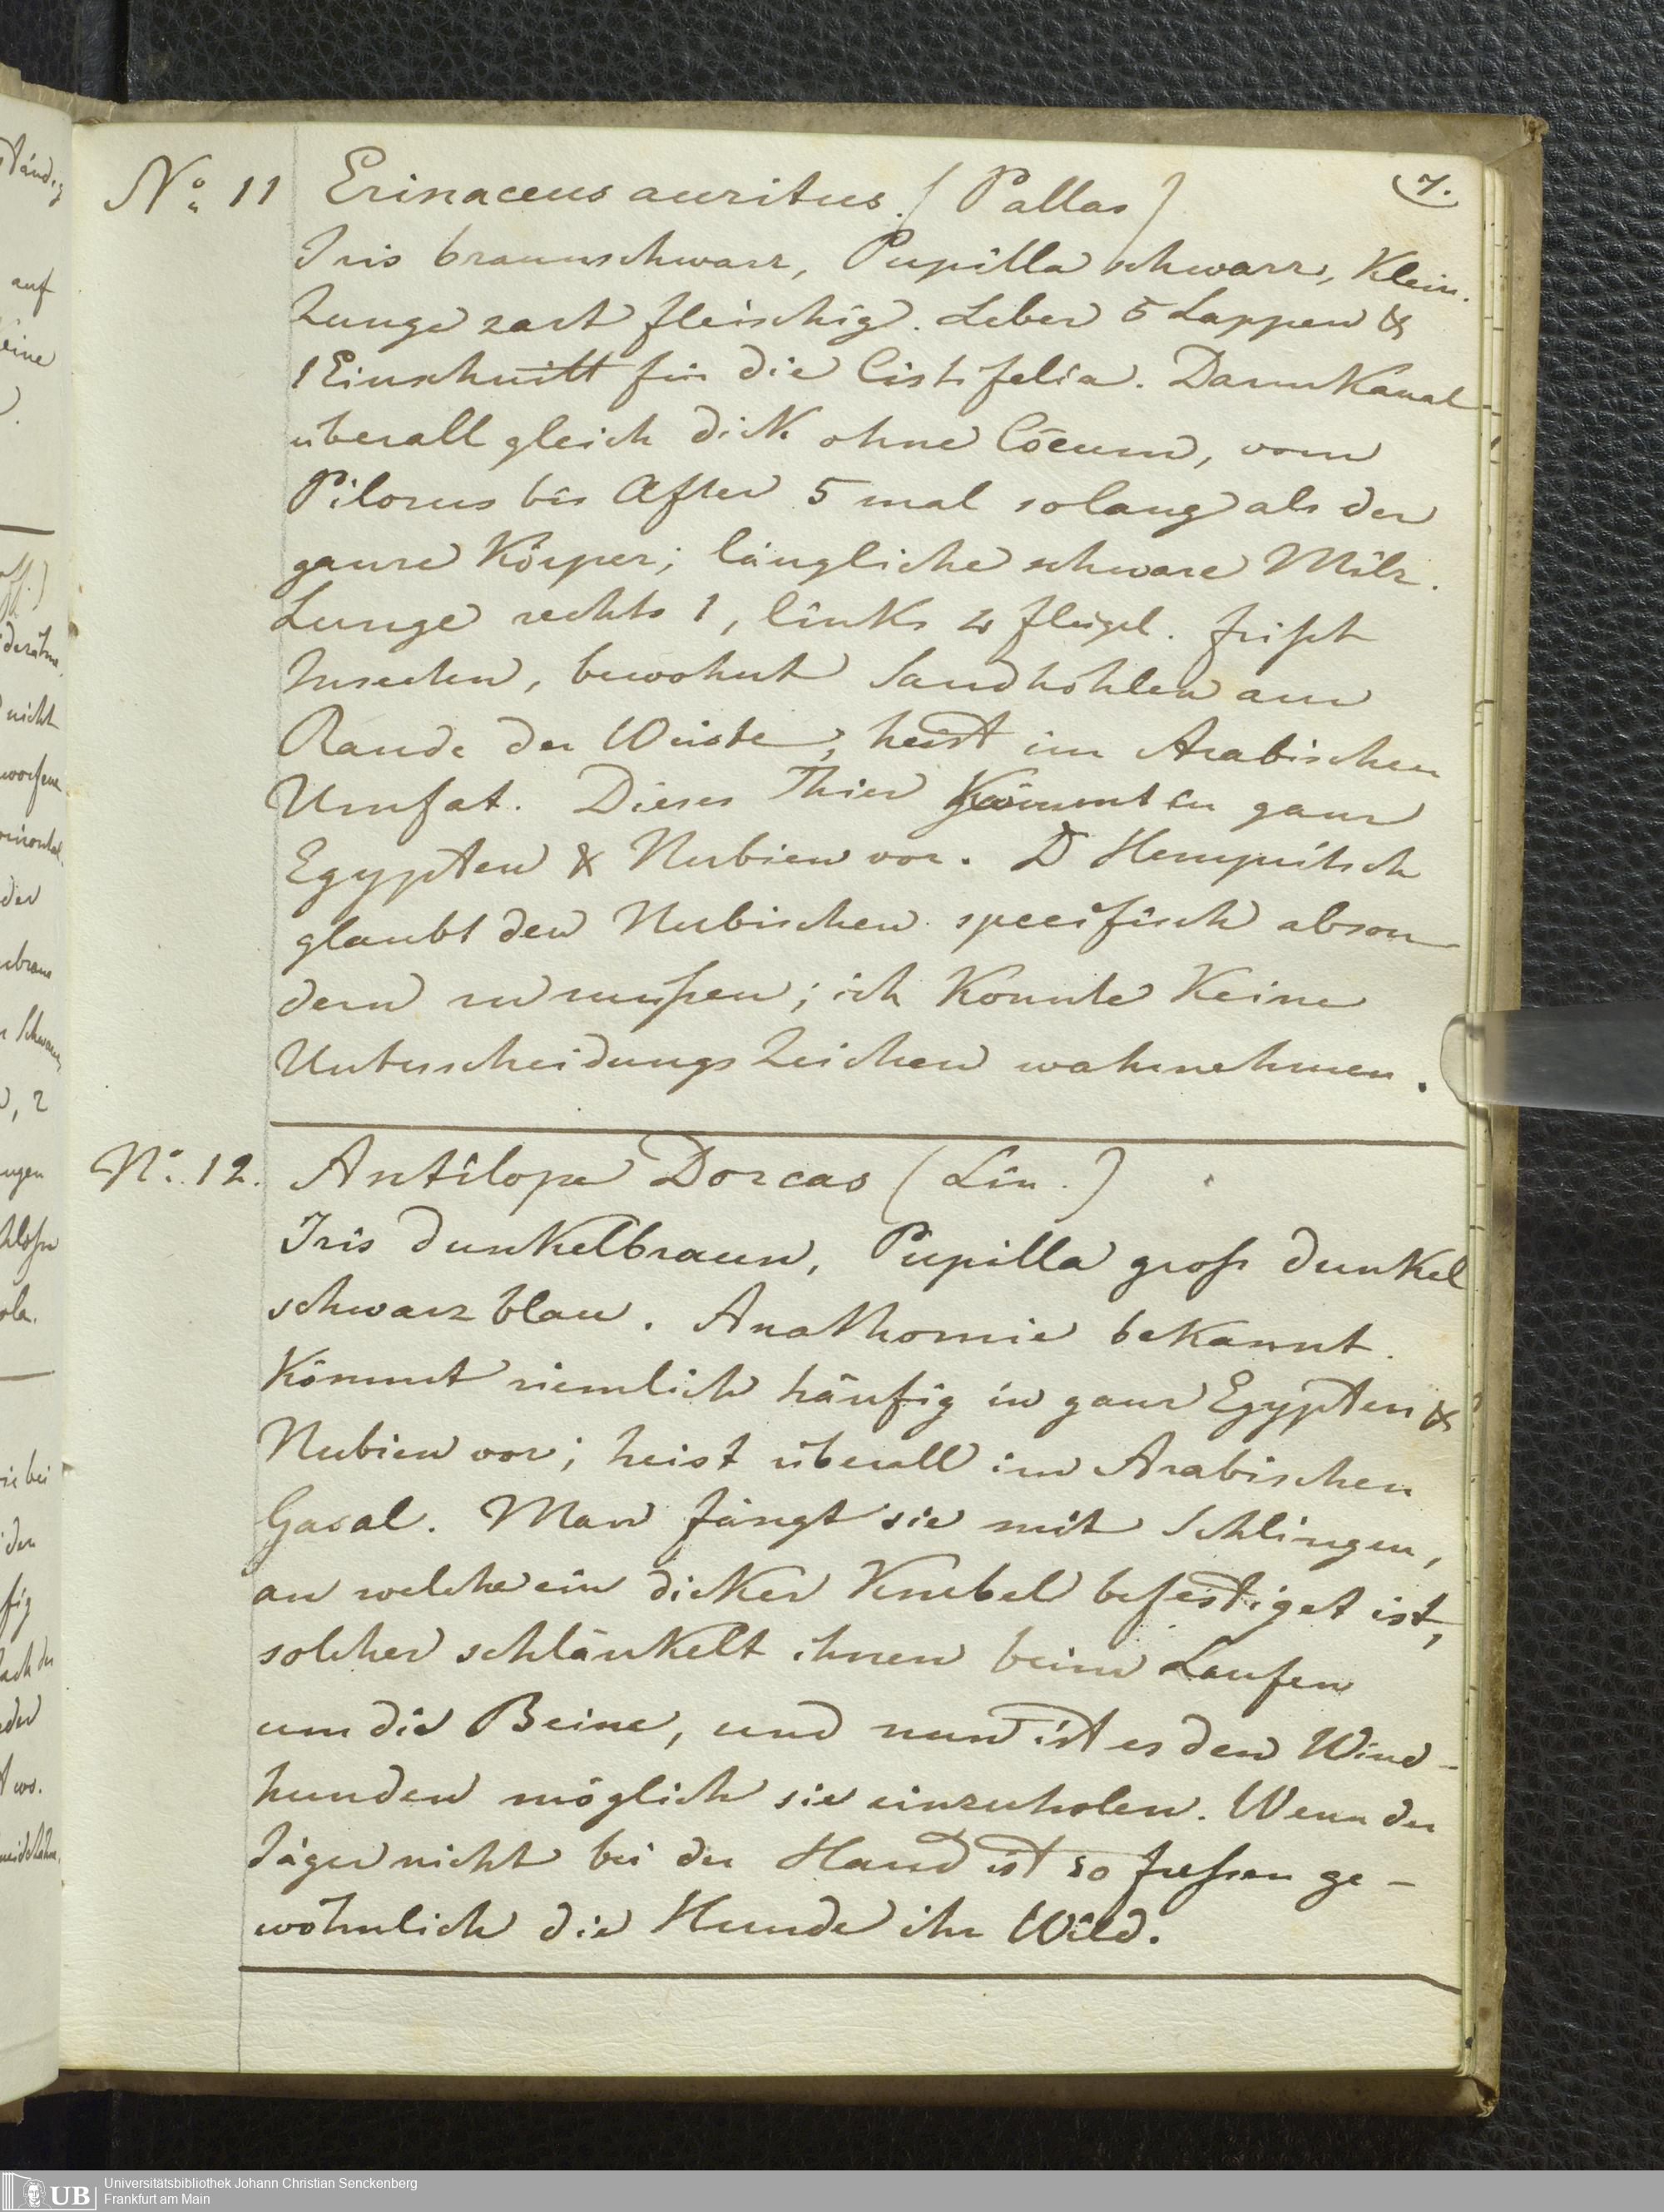 7.
No 11 Erinaceus auritus. (Pallas)
Iris braunschwarz, Pupilla schwarz, Klein.
Zunge zart fleischig. Leber 5 Lappen &
1 Einschnitt für die Cistifelia. DarmKanal
überall gleich dick ohne Cöcum, vom
Pilorus bis After 5 mal solang als der
ganze Körper; längliche schwarze Milz.
Lunge rechts 1, linKs 4 flügel. frißt
Insecten, bewohnt Sandhöhlen am
Rande der Wüste, heist im Arabischen
Umfat. Dieses Thier Kömmt in ganz
Egypten & Nubien vor. D Hempritsch
glaubt den Nubischen specifisch abson
dern zu mußen; ich Konnte Keine
Unterscheidungs Zeichen wahrnehmen.
No. 12. Antilope Dorcas (Lin.)
Iris dunKelbraun, Pupilla groß dunKel
schwarz blau. Anathomie beKannt.
Kömmt ziemlich häufig in ganz Egypten &
Nubien vor; heist überall im Arabischen
Gasal. Man fängt sie mit Schlingen,
an welche ein dicKer Knebel befestiget ist,
solcher schlänKelt ihnen beim Laufen
um die Beine, und nun ist es den Wind-
hunden möglich sie einzuholen. Wenn der
Jäger nicht bei der Hand ist so freßen ge-
wöhnlich die Hunde ihr Wild.
UB Universitätsbibliothek Johann Christian Senckenberg
Frankfurt am Main